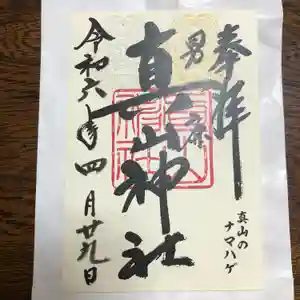 奉拝
真山の
ナマハゲ
男鹿
真山神社
令和六年四月廿九日